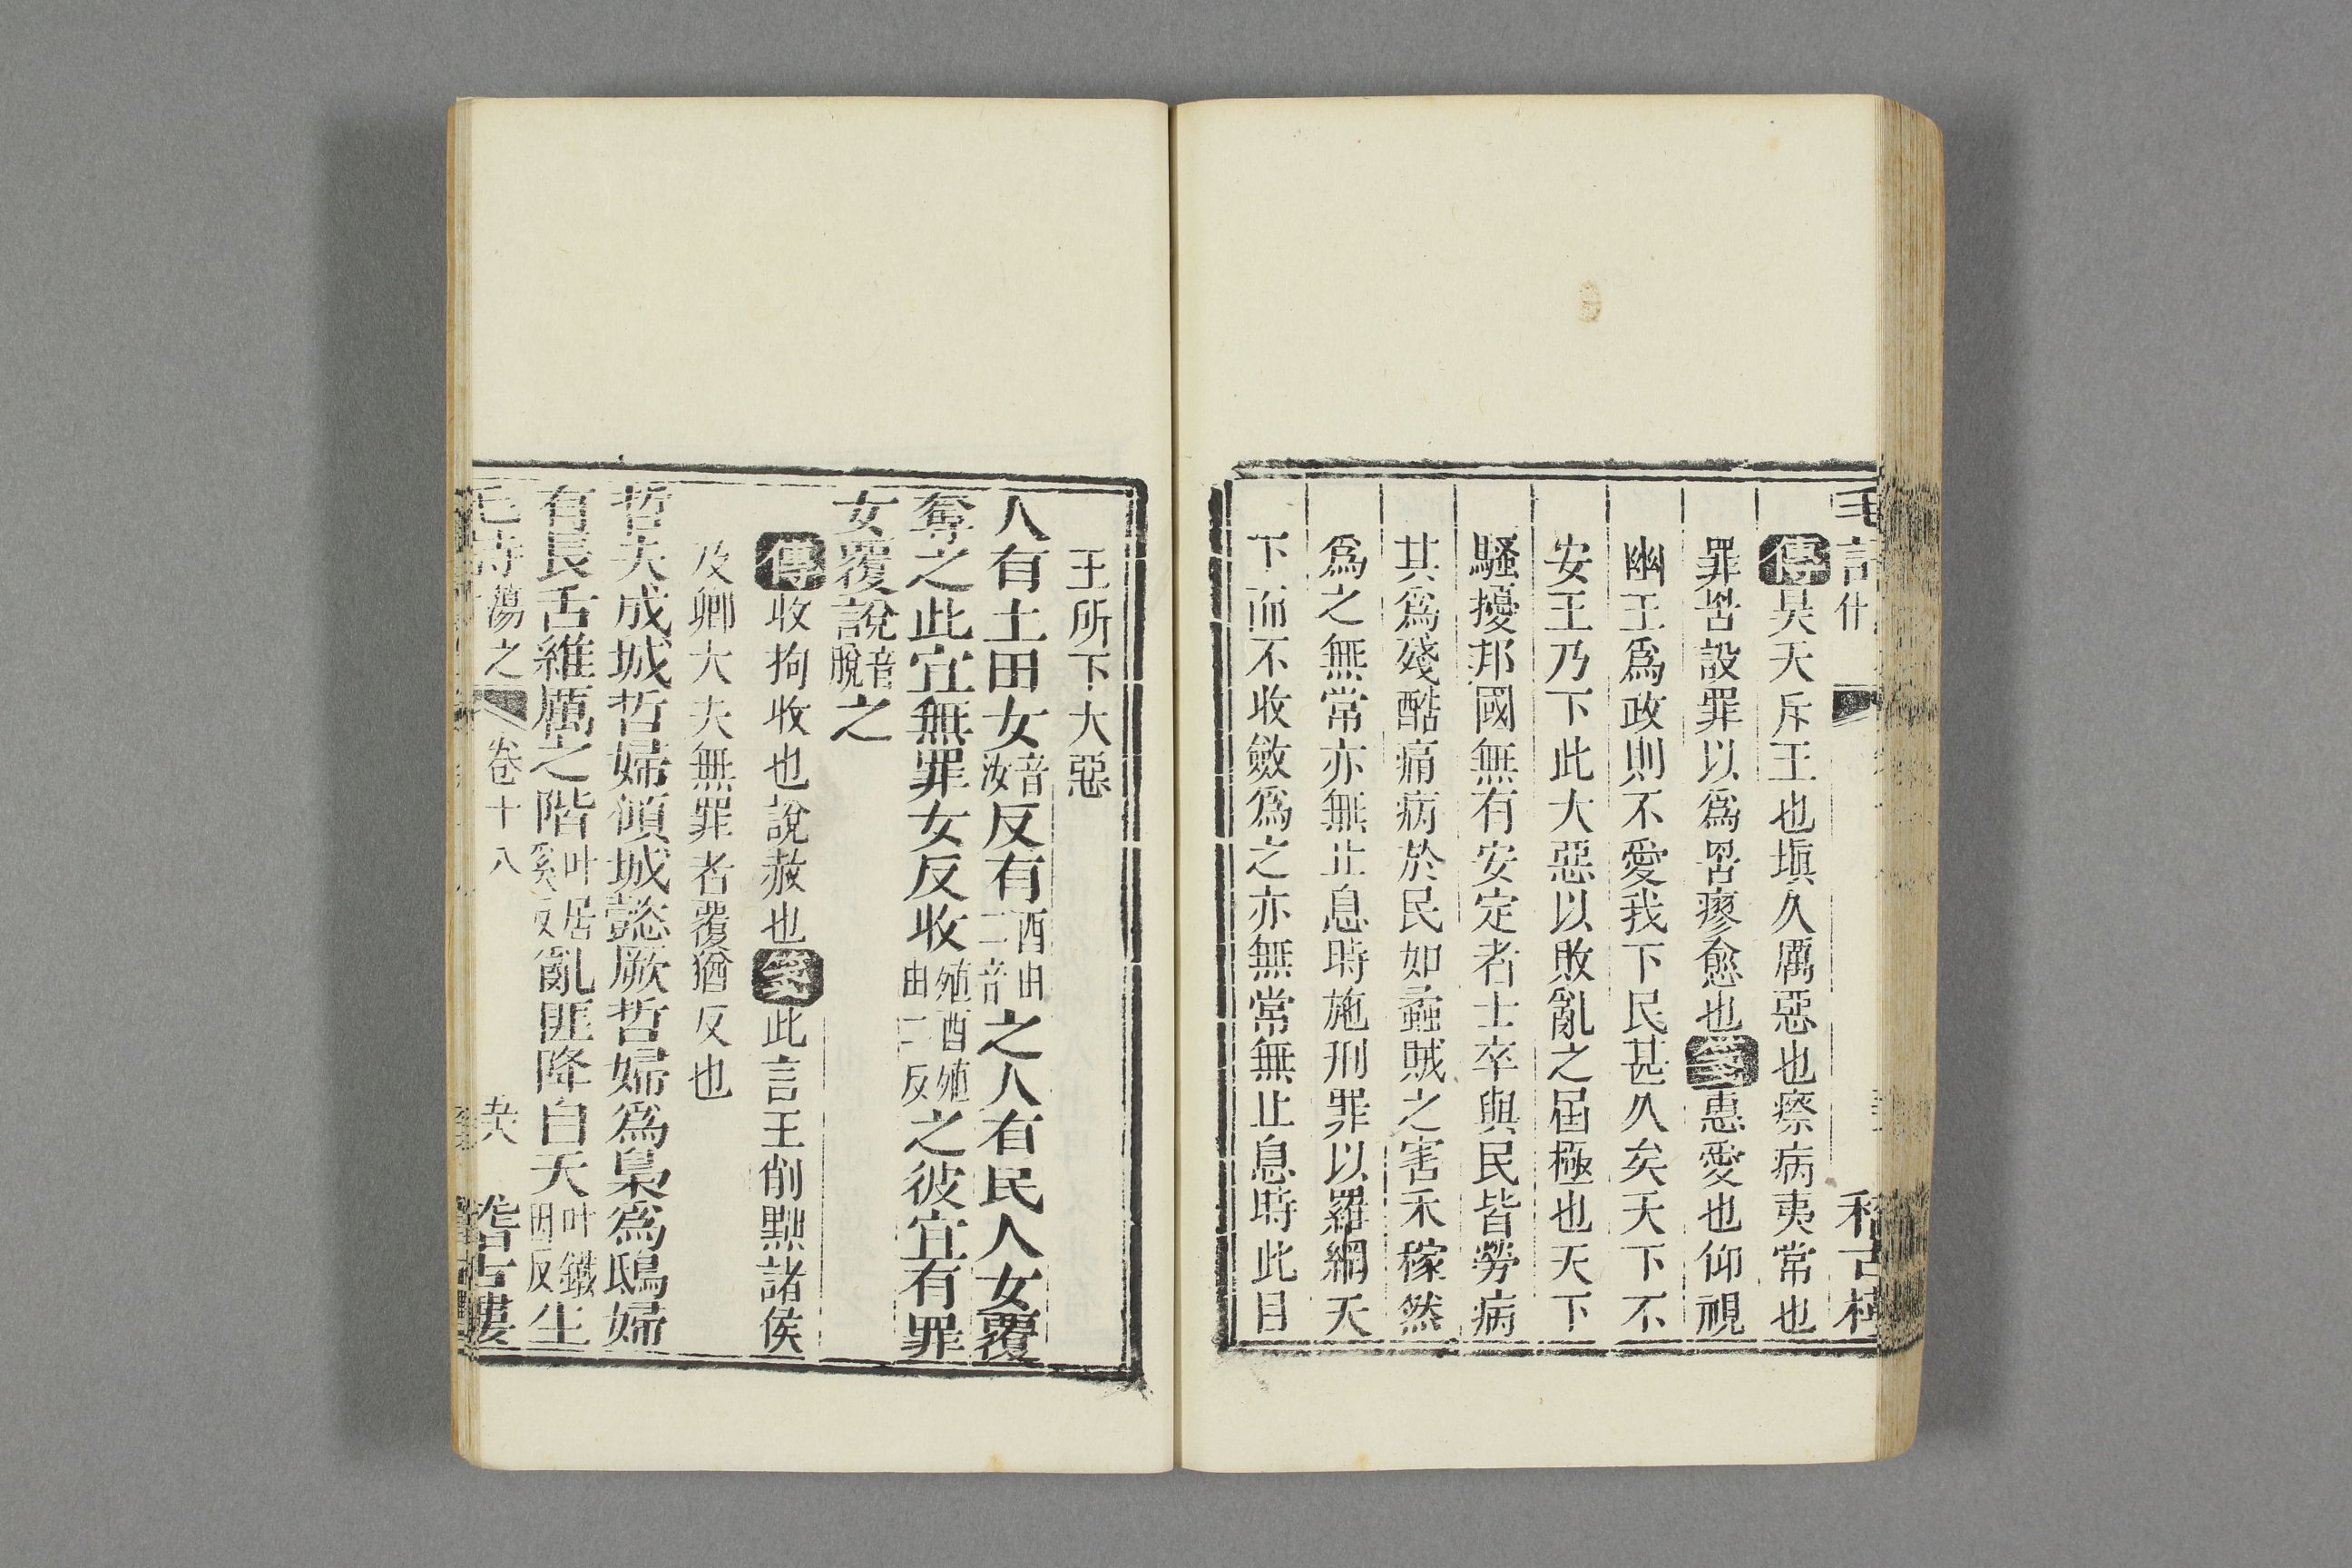 傳昊天斥王也塡久厲惡也瘵病夷常也
罪罟設罪以爲罟瘳愈也箋惠愛也仰視
幽王爲政則不愛我下民甚久矣天下不
安王乃下此大惡以敗亂之屆極也天下
騷擾邦國無有安定者士卒與民皆勞病
其爲殘酷痛病於民如蟊賊之害禾稼然
爲之無常亦無止息時施刑罪以羅網天
下而不收斂爲之亦無常無止息時此目
王所下大惡
人有土田女音汝反有酉由二音之人有民人女覆
奪之此宜無罪女反收殖酉殖由二反之彼宜有罪
女覆說音脫之
傳收拘收也說赦也箋此言王削黜諸侯
及卿大夫無罪者覆猶反也
哲夫成城哲婦傾城懿厥哲婦爲梟爲鴟婦
有長舌維厲之階叶居奚反亂匪降自天叶鐵因反生
毛詩蕩之 卷十八 稽古樓